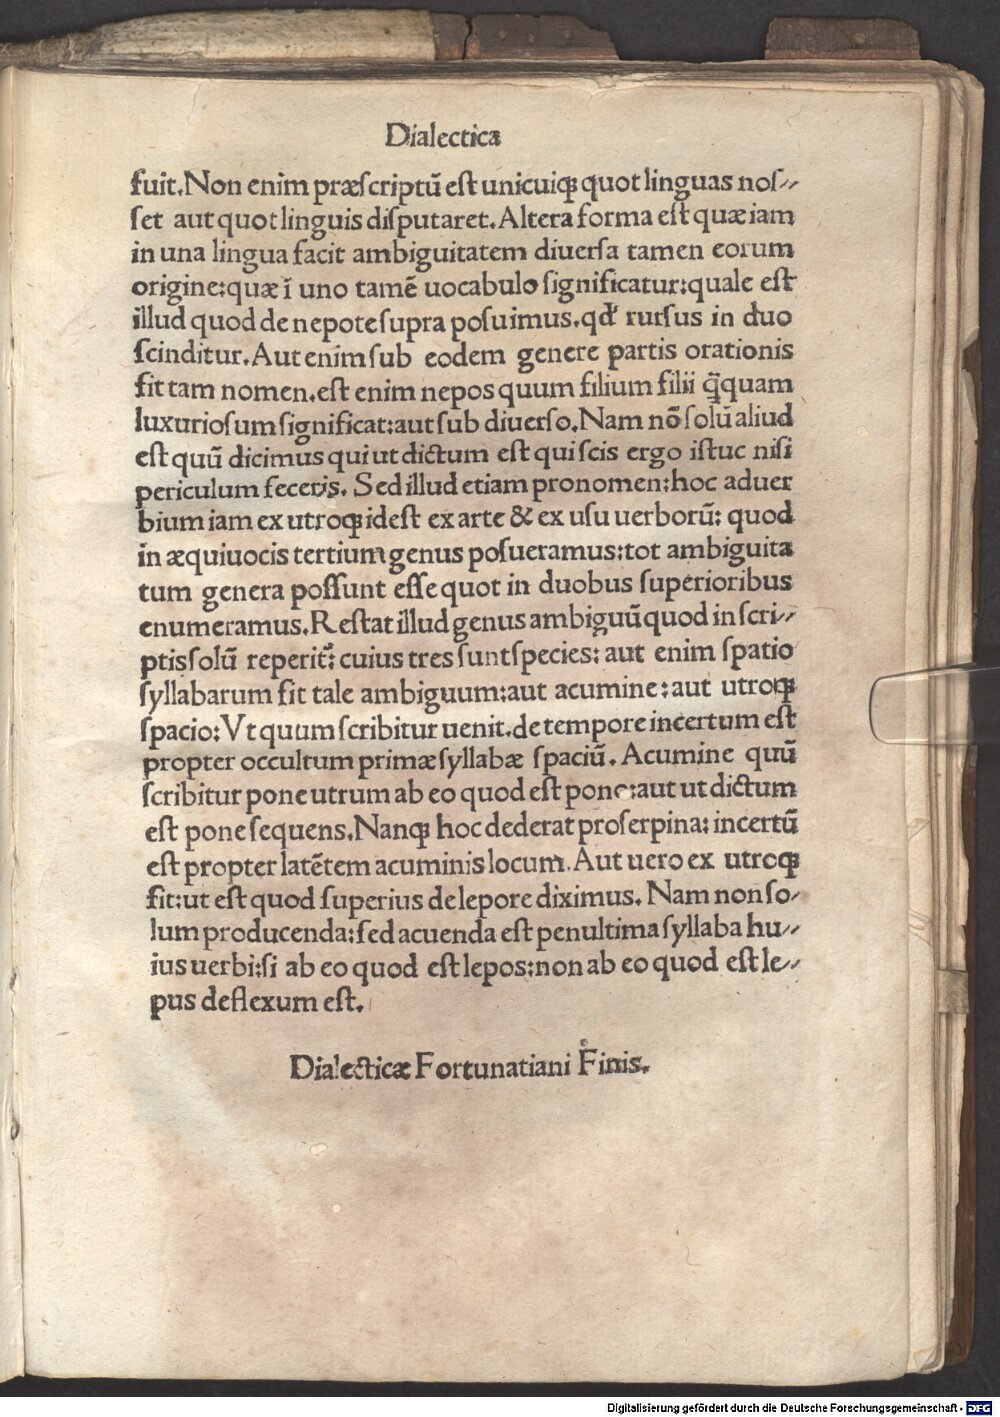 Dialectica
fuit. Non enim præſcriptū eſt unicuiqꝫ quot linguas noſ⸗
ſet aut quot linguis diſputaret. Altera forma eſt quæ iam
in una lingua facit ambiguitatem diuerſa tamen eorum
origine: quæ ī uno tamē uocabulo ſignificatur: quale eſt
illud quod de nepote ſupra poſuimus. qđ rurſus in duo
ſcinditur. Aut enim ſub eodem genere partis orationis
fit tam nomen. eſt enim nepos quum filium filii q̄quam
luxurioſum ſignificat: aut ſub diuerſo. Nam nō ſolū aliud
eſt quū dicimus qui ut dictum eſt qui ſcis ergo iſtuc niſi
periculum feceris. Sed illud etiam pronomen: hoc aduer
bium iam ex utroqꝫ ideſt ex arte & ex uſu uerborū: quod
in æquiuocis tertium genus poſueramus: tot ambiguita
tum genera poſſunt eſſe quot in duobus ſuperioribus
enumeramus. Reſtat illud genus ambiguū quod in ſcri⸗
ptis ſolū reperit᷑: cuius tres ſunt ſpecies: aut enim ſpatio
ſyllabarum fit tale ambiguum: aut acumine: aut utroqꝫ
ſpacio: Vt quum ſcribitur uenit. de tempore incertum eſt
propter occultum primæ ſyllabæ ſpaciū. Acumine quū
ſcribitur pone utrum ab eo quod eſt pono: aut ut dictum
eſt pone ſequens. Nanqꝫ hoc dederat proſerpina: incertū
eſt propter latētem acuminis locum. Aut uero ex utroqꝫ
fit: ut eſt quod ſuperius de lepore diximus. Nam non ſo⸗
lum producenda: ſed acuenda eſt penultima ſyllaba hu⸗
ius uerbi: ſi ab eo quod eſt lepos: non ab eo quod eſt le⸗
pus deflexum eſt.
Dialecticæ Fortunatiani Finis.
Digitalisierung gefördert durch die Deutsche Forschungsgemeinschaft - DFG